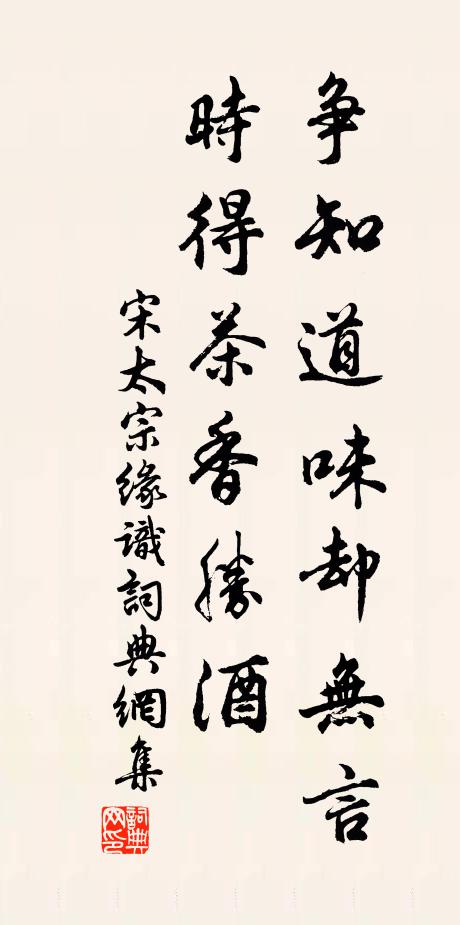 争知道味却無言
時得茶香勝酒
宋太宗緣識詞典網集
詞典网印